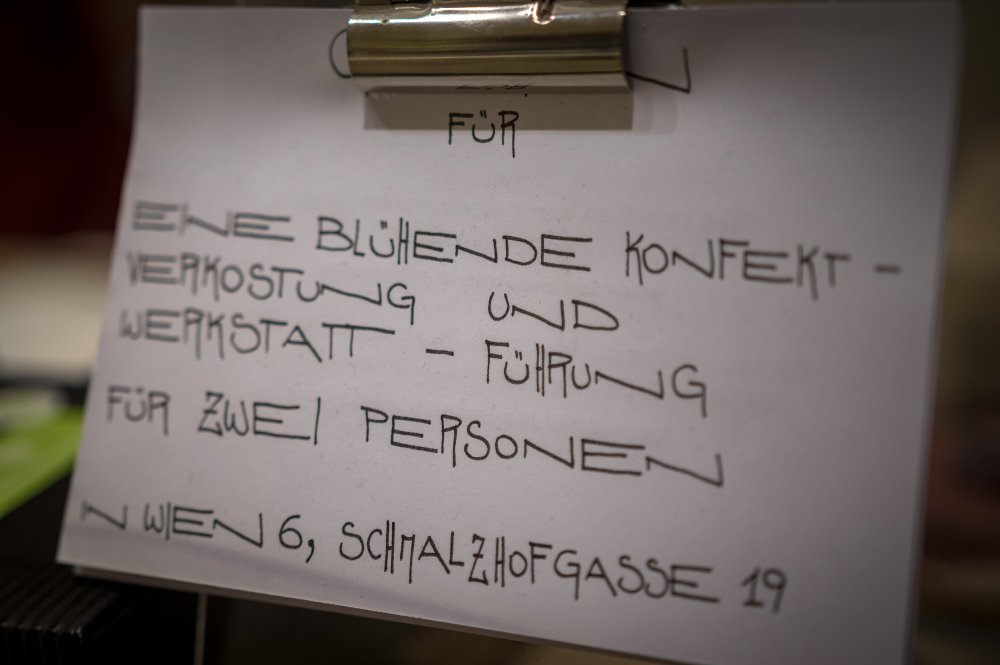 FÜR
EINE BLÜHENDE KONFEKT -
VERKOSTUNG UND
WERKSTATT - FÜHRUNG
FÜR ZWEI PERSONEN
IN WIEN 6, SCHMALZHOFGASSE 19